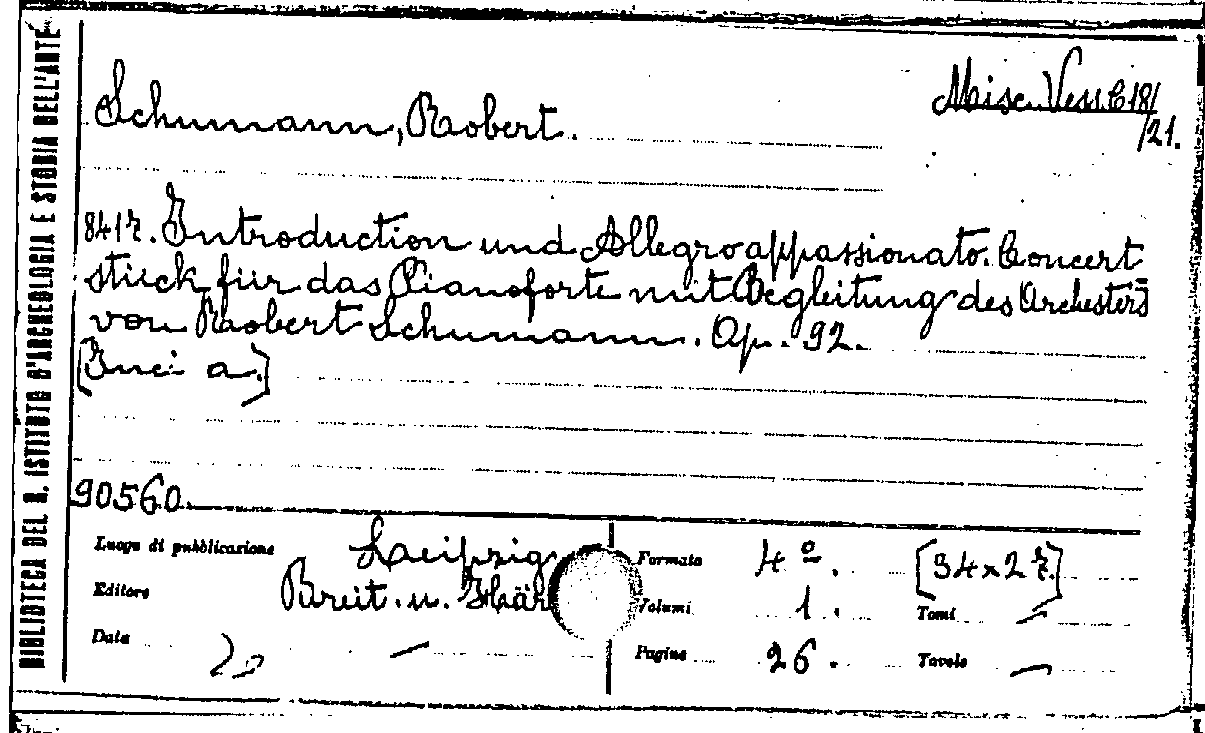 BIBLIOTECA DEL R. ISTITUTO D'ARCHEOLOGIA E STORIA DELL'ARTE
Schumann, Robert.
Misc. Vess. C 181
/21.
Introduction und Allegro appassionato. Concert
stück für das Pianoforte mit Begleitung des Orchesters
von Robert Schumann. Op. 92.
90560.
Luogo di pubblicazione Leipzig
Editore Breit. u. Här
Data —
Formato 4º.
Volumi 1. Tomi —
Pagine 26. Tavole —